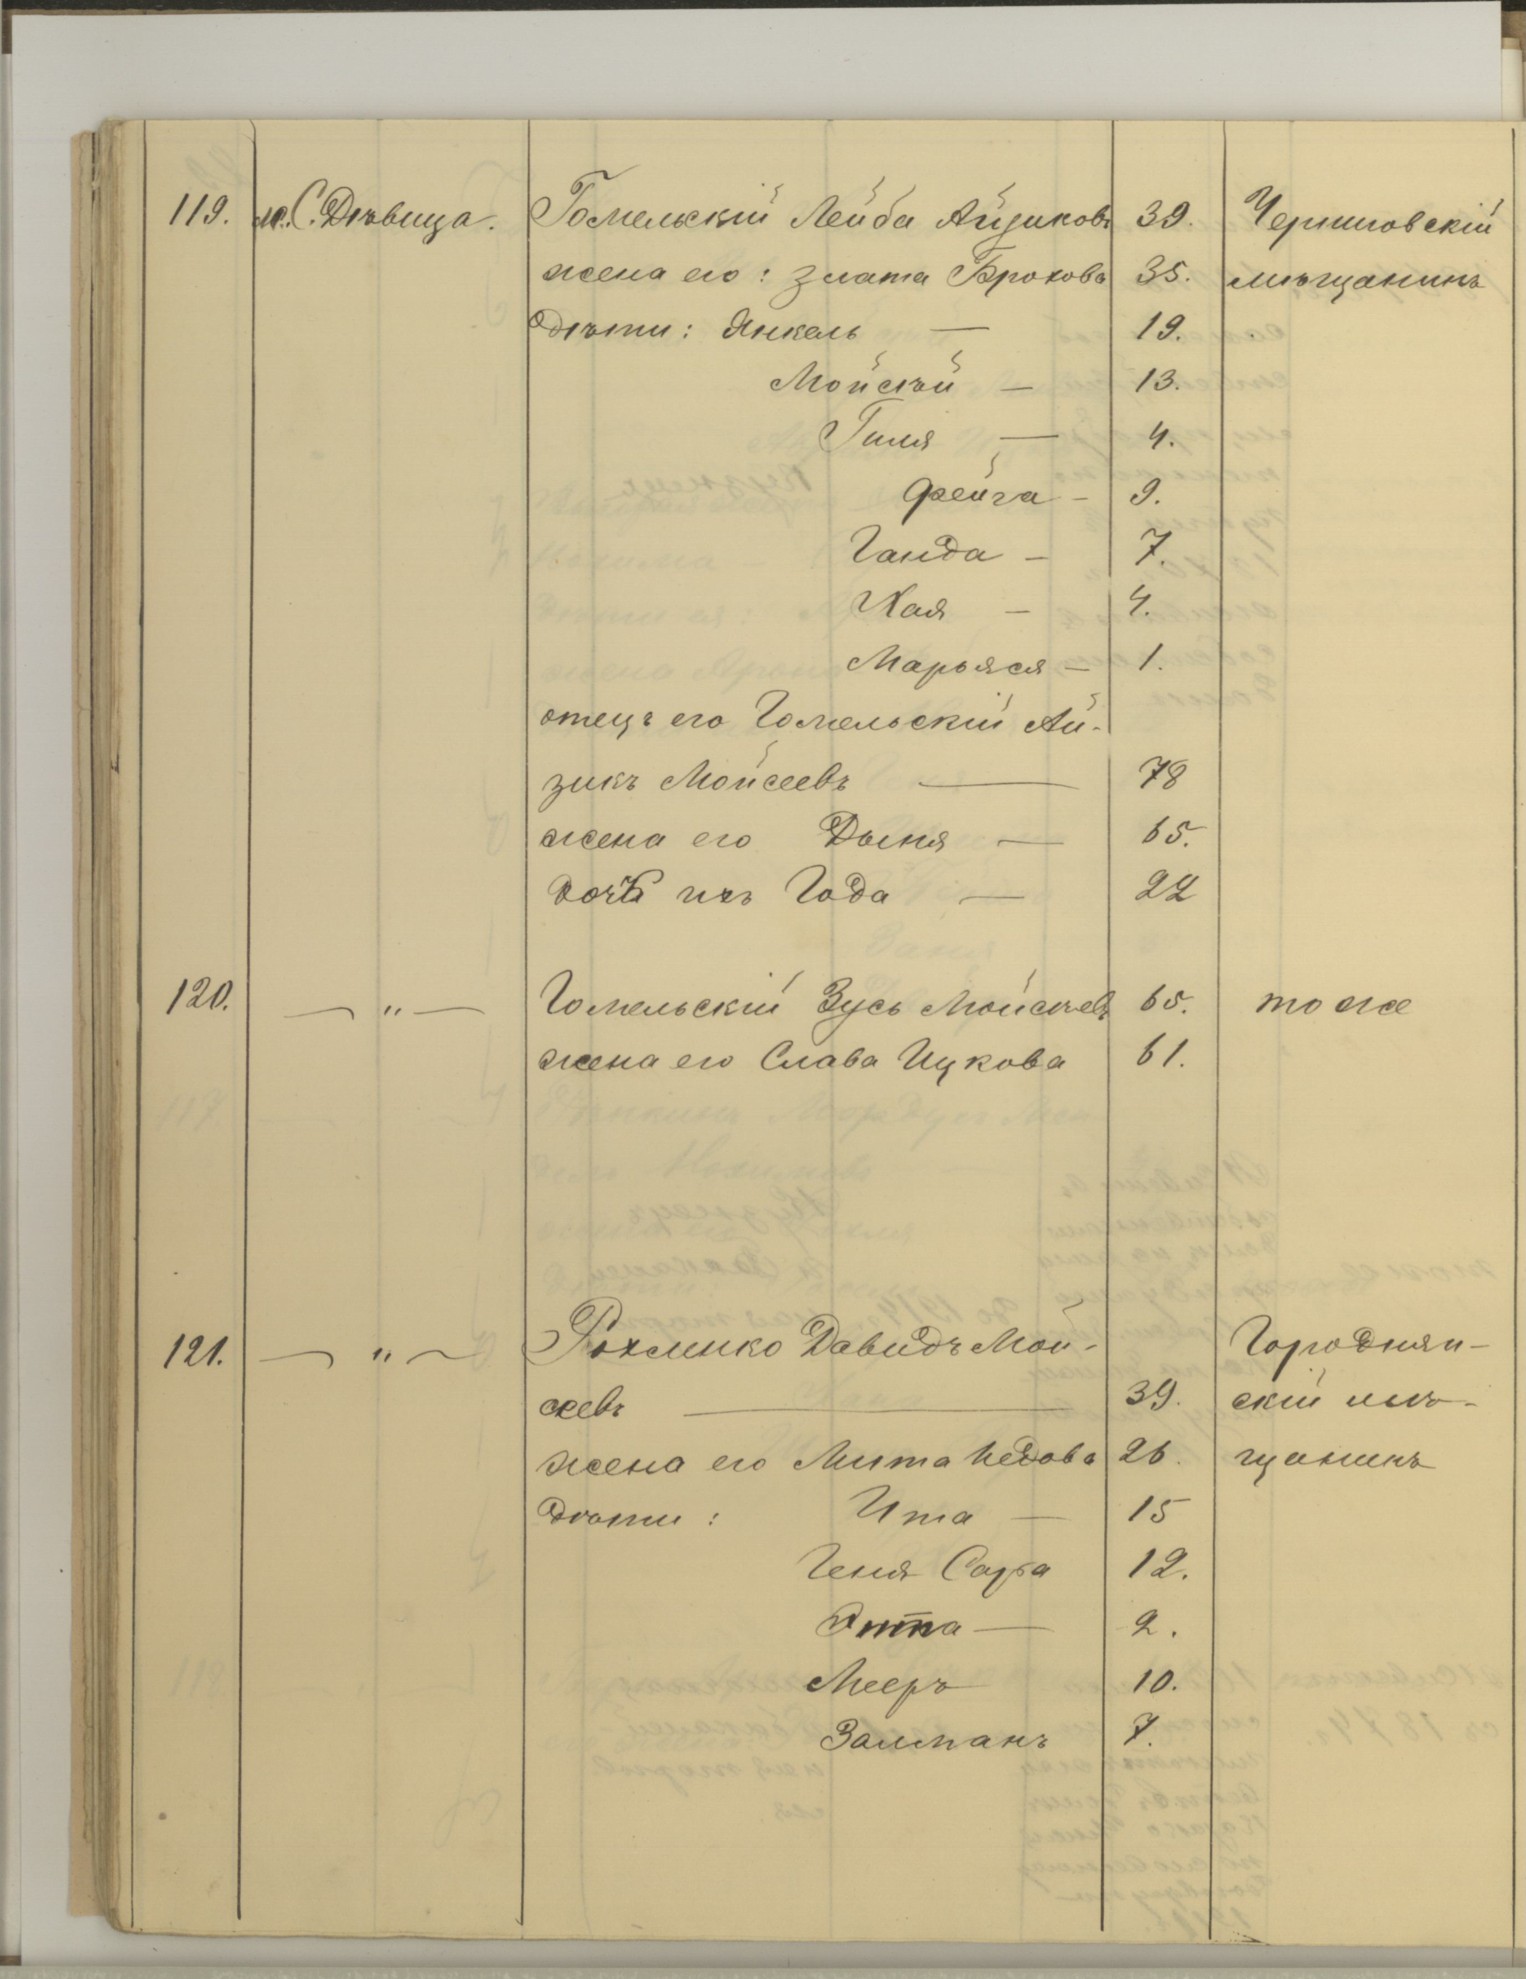 119. м. С. Дѣвица. Гомельскій Лейба Айзиковъ 39. Черниговскій
жена его: Злата Брохова 35. мѣщанинъ
дѣти: Янкель — 19.
Мойсѣй — 13.
Гиля — 4.
Фейга - 9.
Ганда - 7.
Хая - 4.
Марьяся - 1.
отецъ его Гомельскій Ай-
зикъ Мойсеевъ — 78
жена его Дыня — 65.
дочь ихъ Года — 22
120. — " — Гомельскій Зусь Мойсѣевъ 65. тоже
жена его Слава Ицкова 61.
121. — " — Рохленко Давидъ Мой- Городнян-
сеевъ — 39. скій мѣ-
жена его Мита 26. щанинъ
дѣти: Ита — 15
Геня Сора 12.
Этта — 2.
Мееръ 10.
Залманъ 7.